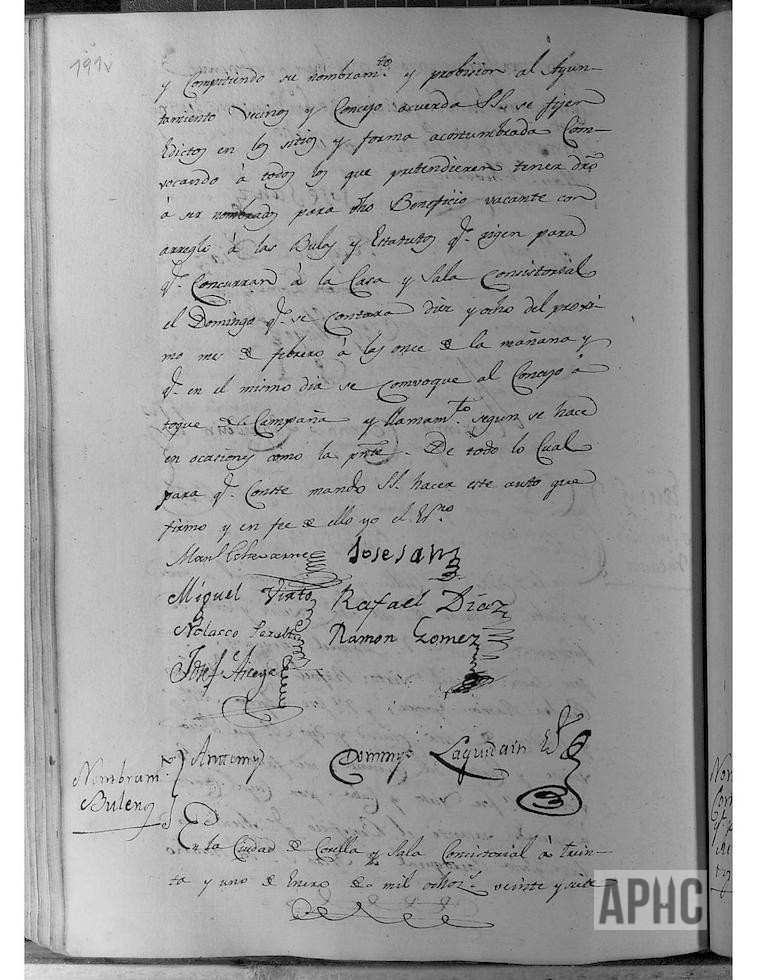 191v
y Compitiendo su nombram.to y probision al Ayun-
tamiento Vecinos y Concejo acuerda SS. se fijen
Edictos en los sitios y forma acostumbrada Com-
vocando á todos los que pretendieren tener dro
á ser nombrados para dho Beneficio vacante con
arreglo á las Bulas y Estatutos q.e rigen para
q.e Concurran á la Casa y Sala Consistorial
el Domingo q.e se contara diez y ocho del proxi-
mo mes de febrero á las once de la mañana y
q.e en el mismo dia se Comvoque al Concejo á
toque de Campaña y llamam.to segun se hace
en ocasiones como la pnte. De todo lo Cual
para q.e Conste mando SS. hacer este auto que
firmo y en fee de ello yo el Es.no
Man.l Echevarne Jose San
Miguel Virto Rafael Diaz
Nolasco Peralta Ramon Gomez
Josef Arcaya
Nombram.to Antemy Dommgo Laquidain Es.
Buleros
En la Ciudad de Corella y Sala Consistorial á trein-
ta y uno de Enero de mil ochoz.s veinte y siete
APHC